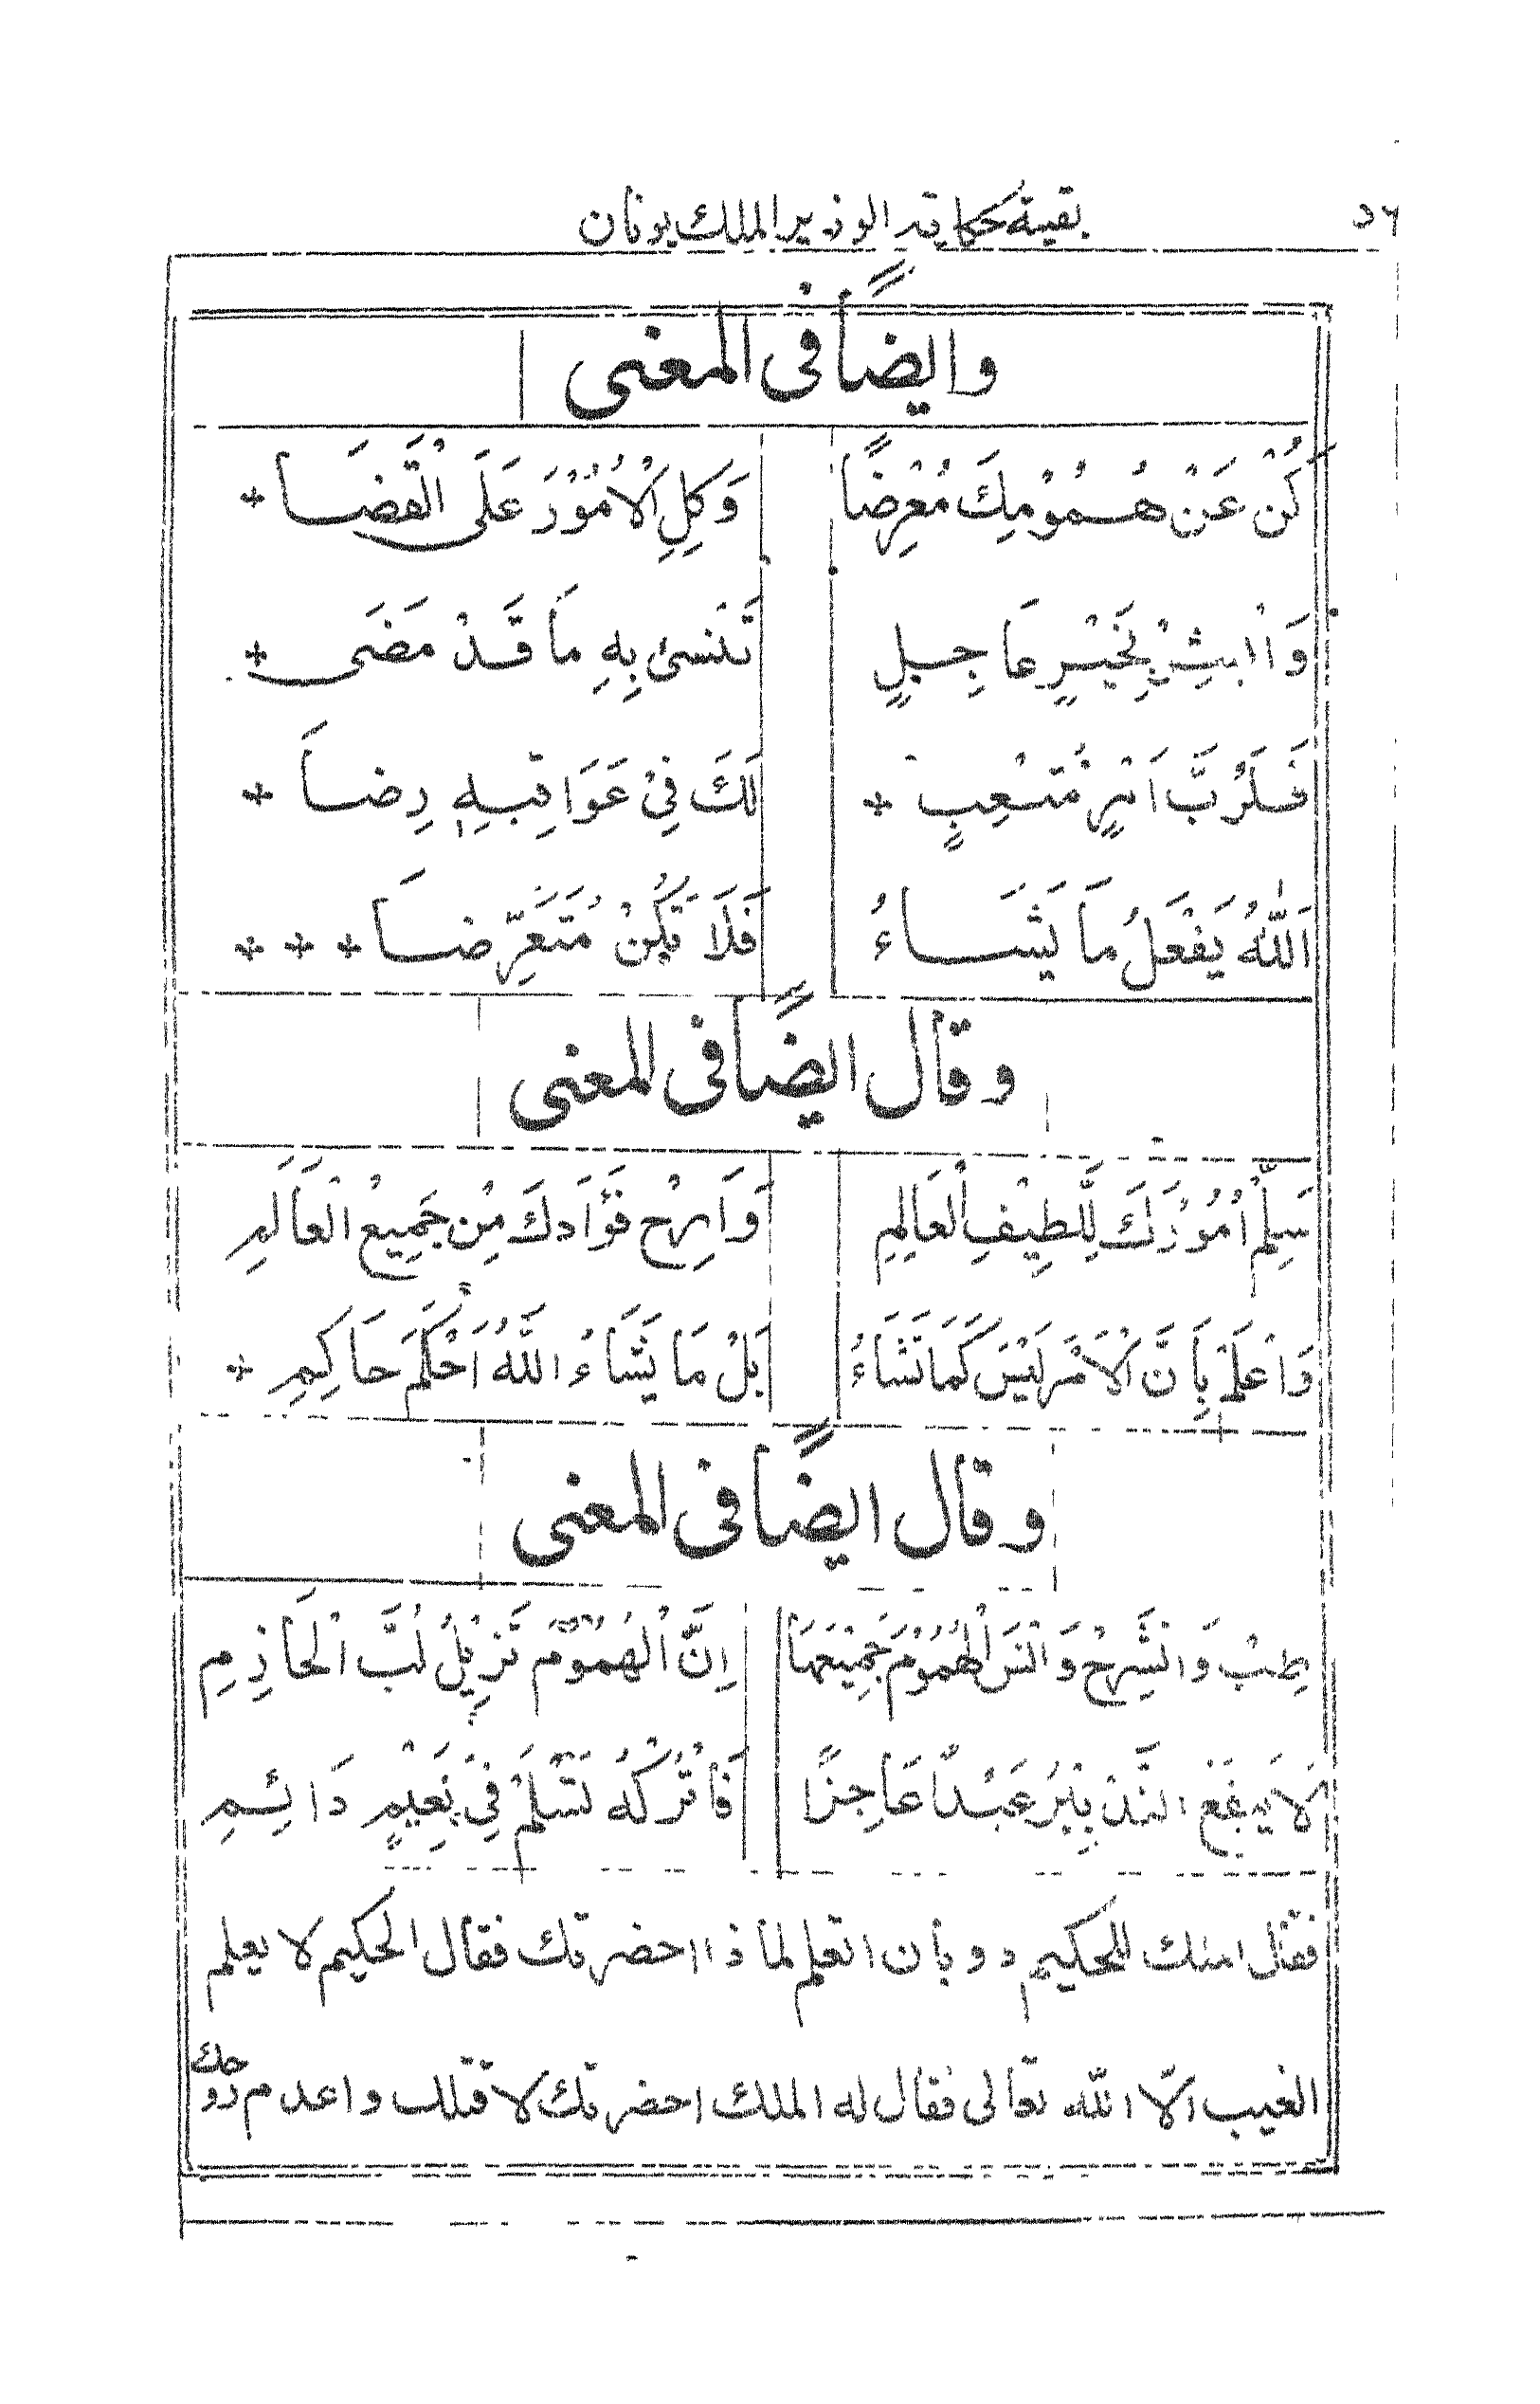 ٥٦ بقية حكاية الوزير الملك يونان
وايضًا فى المعنى
كُنْ عَنْ هُمُوْمِكَ مُعْرِضًا وَكِلِ الْاُمُوْرَ عَلَى الْقَضَا *
وَاابْشِرْ بِخَيْرٍ عَاجِلٍ تَنْسىٰ بِهِ مَا قَدْ مَضَى *
فَلَرُبَّ اَمْرٍ مُتْعِبٍ * لَكَ فِيْ عَوَاقِبِهٖ رِضَا *
اَللّٰهُ يَفْعَلُ مَا يَشَاءُ فَلَا تَكُنْ مُتَعَرِّضَا * * *
وقال ايضًا فى المعنى
سَلِّمْ اُمُوْرَكَ لِلَّطِيْفِ الْعَالِمِ وَاَرِحْ فُؤَادَكَ مِنْ جَمِيعْ الْعَالَمِ
وَاعْلَمْ بِاَنَّ الْاَمْرَ لَيْسَ كَمَا تَشَاءُ بَلْ مَا يَشَاءُ اللّٰهُ اَحْكَمَ حَاكِمِ *
وقال ايضًا فى المعنى
طِبْ وَانْشَرِحْ وَانْسَ الْهُمُوْمَ جَمِيْعَهَا اِنَّ الْهُمُوْمَ تَزِيْلُ لُبَّ الْحَاذِمِ
لَا يَنْفَعُ التَّدْبِيْرُ عَبْدًا عَاجِزًا فَاتْرُكْهُ تَسْلَمْ فِيْ نَعِيْمٍ دَائِمِ
فقال الملك للحكيم دوبان اتعلم لماذا احضرتك فقال الحكيم لا يعلم
الغيب الّا اللّٰه تعالى فقال له الملك احضرتك لاقتلك واعدم روحك